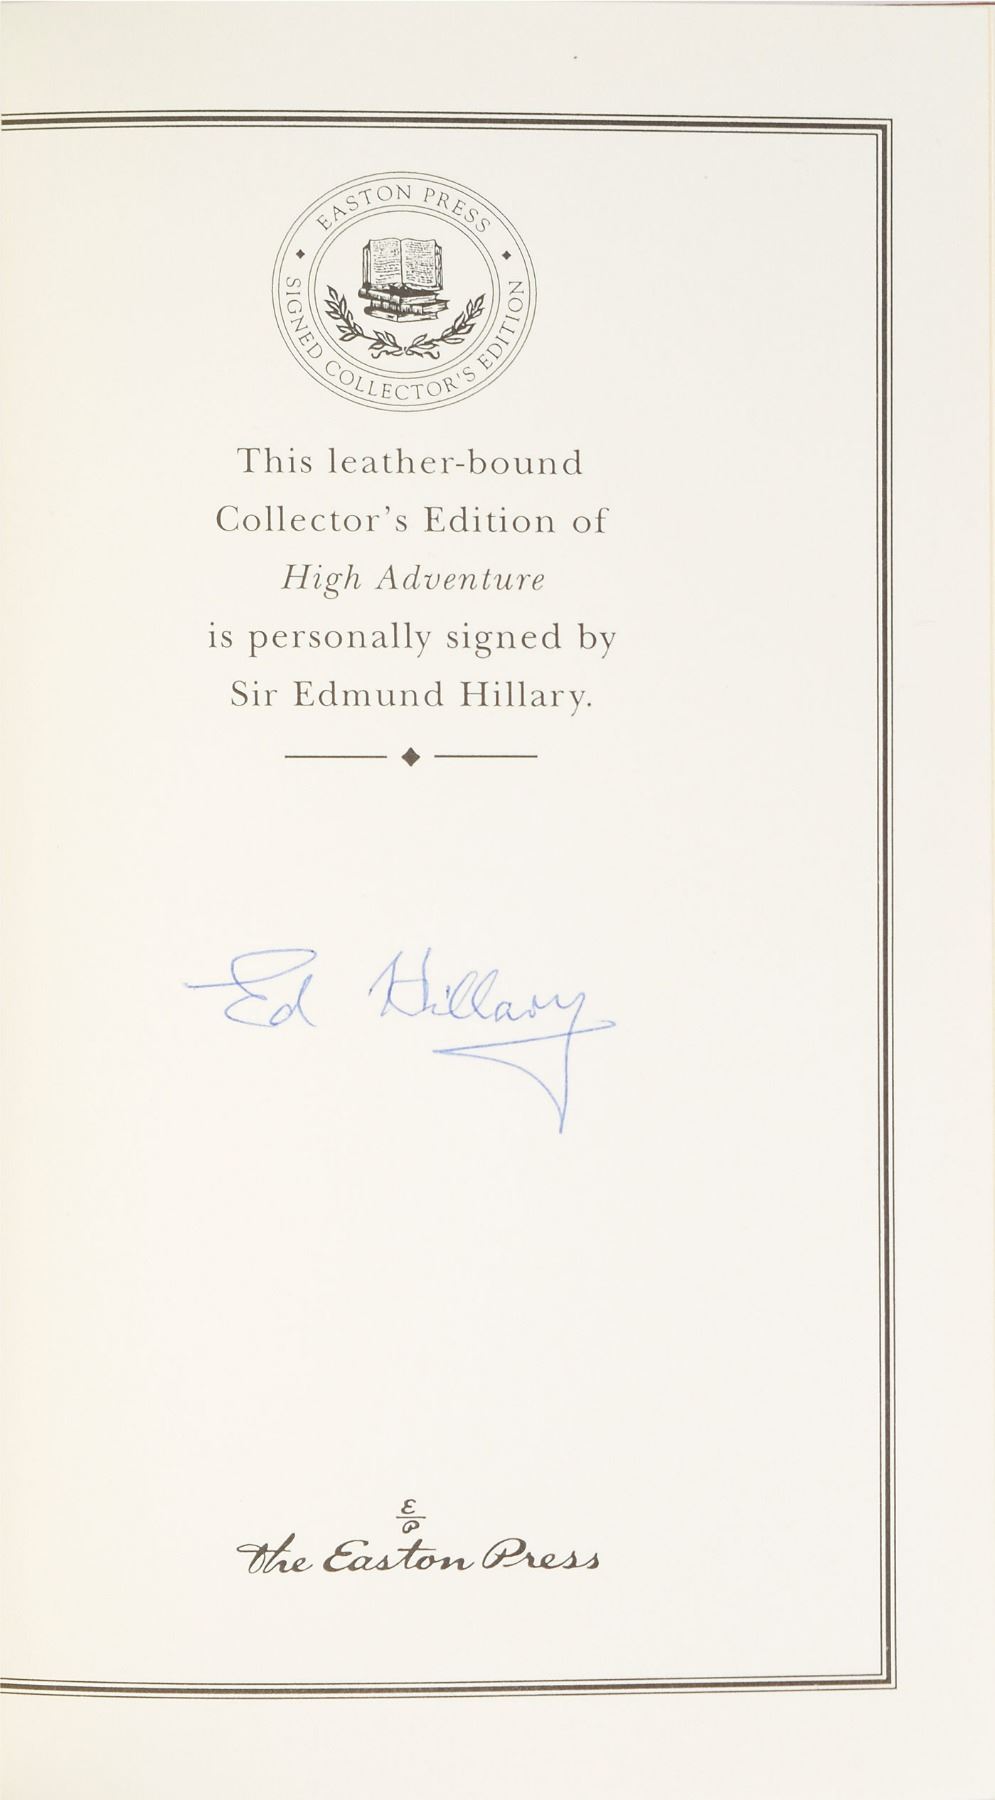 EASTON PRESS
SIGNED COLLECTOR'S EDITION
This leather-bound
Collector's Edition of
High Adventure
is personally signed by
Sir Edmund Hillary.
Ed Hillary
E
P
The Easton Press